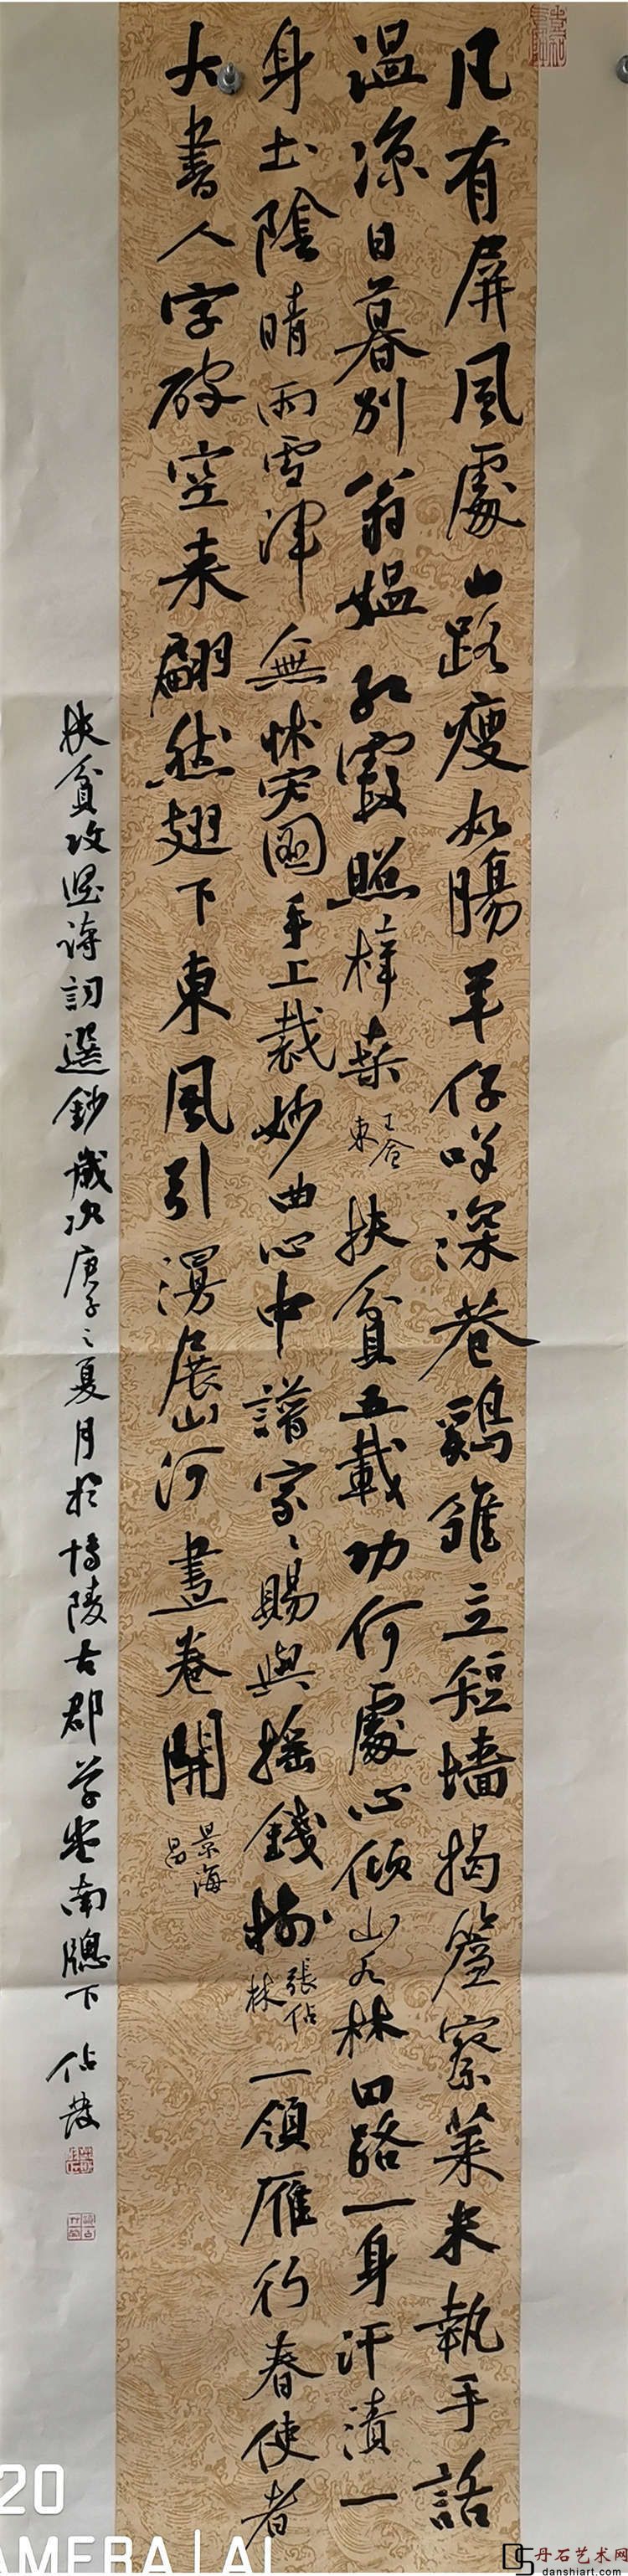 凡有屏風處山路瘦如腸羊仔咩深巷鷄雏立短墙揭簷察菜米執手話
温凉日暮别翁媪紅霞照樟桒 王令東 扶貧五載功何處心倾山水林田路一身汗漬一
身土陰晴雨雪津無怵窮國手上裁妙曲心中譜家〻賜與摇錢樹 張佔林 一領雁行春使者
大書人字破空来翩然翅下東風引漫展山河畫卷開 景海昌
扶貧攻坚詩詞選鈔歲次庚子之夏月於博陵古郡草堂南牕下 佔發
20
AMERA | AI
丹石艺术网
danshiart.com